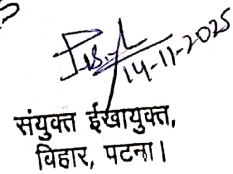 14-11-2025
संयुक्त ईखायुक्त,
विहार, पटना।